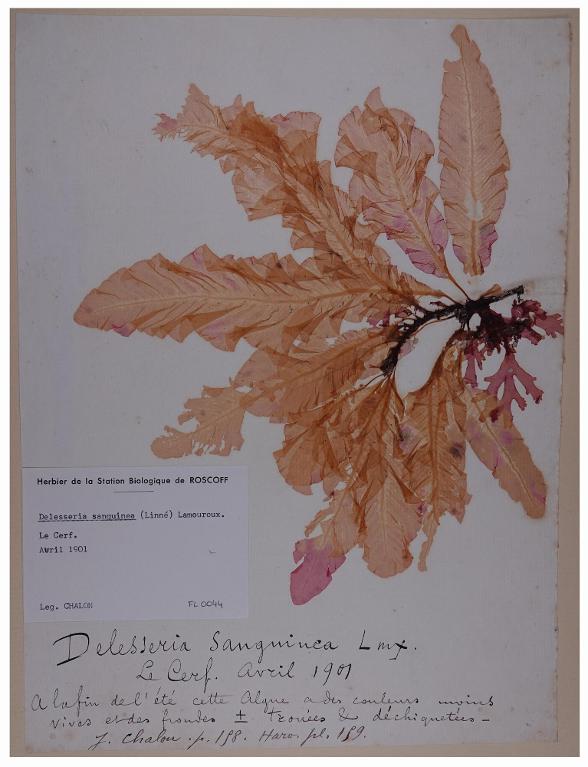 Herbier de la Station Biologique de ROSCOFF
Delesseria sanguinea (Linné) Lamouroux.
Le Cerf.
Avril 1901
Leg. CHALON
FL 0044
Delesseria Sanguinea Lmx.
Le Cerf. Avril 1901
A la fin de l'été cette Algue a des couleurs moins
vives et des frondes ± trouées & déchiquetées -
J. Chalon. p. 198. Harv. pl. 159.